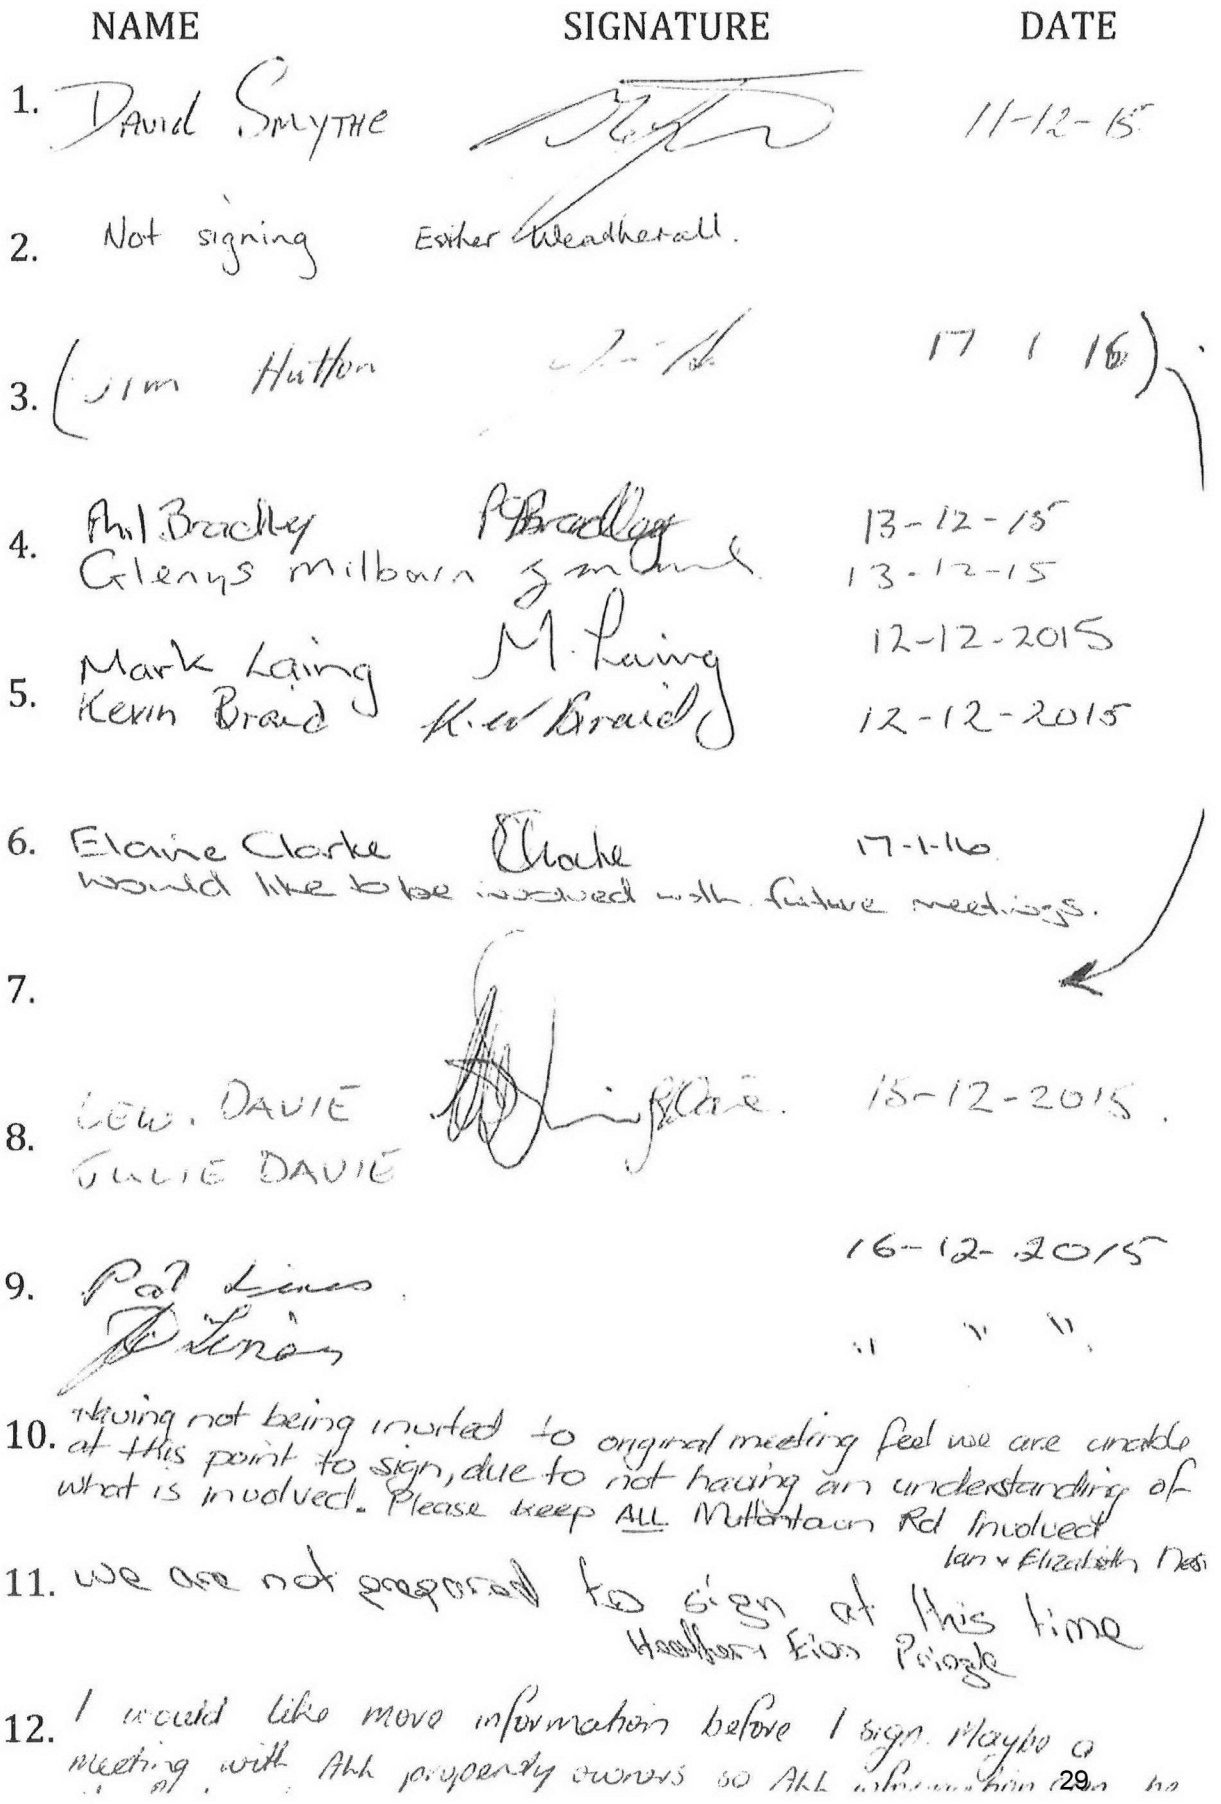 NAME SIGNATURE DATE
1. David Smythe 11-12-15
2. Not signing Esther Weatherall.
3. (Jim Hutton 17 1 16)
4. Phil Bradley PBradley 13-12-15
Glenys Milburn 13-12-15
Mark Laing M. Laing 12-12-2015
5. Kevin Braid K.W Braid 12-12-2015
6. Elaine Clarke EClarke 17-1-16
would like to be involved with future meetings.
7.
LEW. DAVIE 15-12-2015.
8.
JULIE DAVIE
16-12-2015
9. Pat
" " "
10. Having not being invited to original meeting feel we are unable
at this point to sign, due to not having an understanding of
what is involved. Please keep ALL Muttontown Rd Involved
Ian & Elizabeth
11. we are not prepared to sign at this time
Heather & Eion Pringle
12. I would like more information before I sign. Maybe a
meeting with ALL property owners so ALL information can be
29